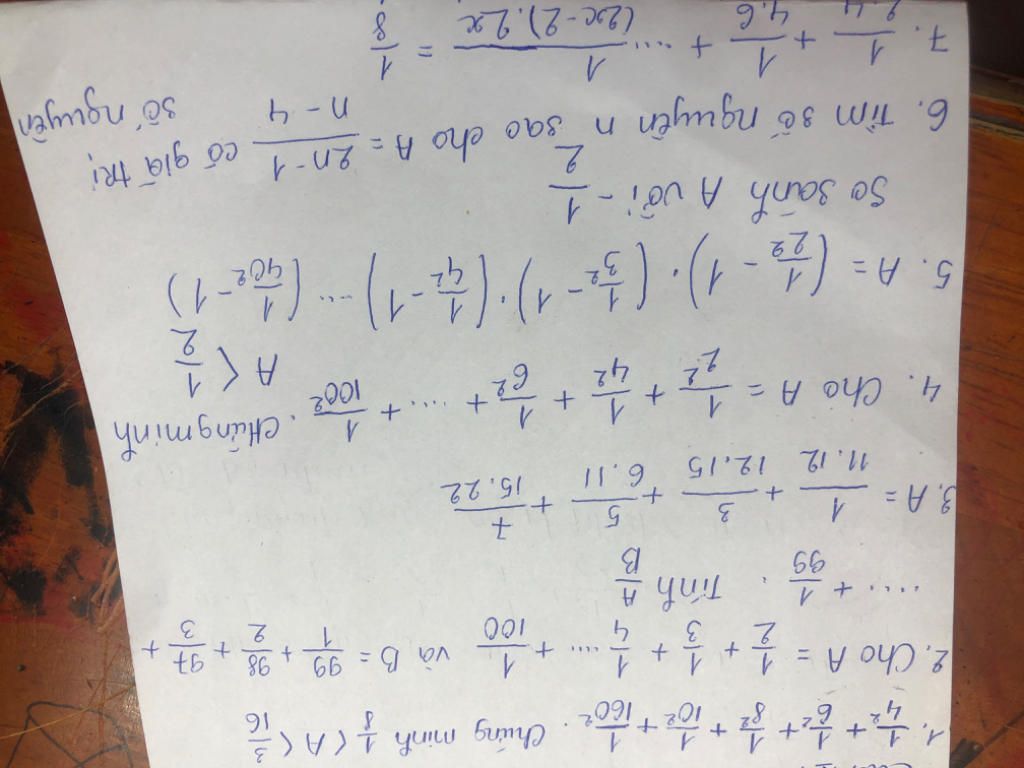 1. 1/4² + 1/6² + 1/8² + 1/10² + 1/160². Chứng minh 1/8 < A < 3/16
2. Cho A = 1/2 + 1/3 + 1/4 .... + 1/100 và B = 99/1 + 98/2 + 97/3 +
.... + 1/99 . Tính A/B
3. A = 1/11.12 + 3/12.15 + 5/6.11 + 7/15.22
4. Cho A = 1/2² + 1/4² + 1/6² + .... + 1/100². Chứng minh
A < 1/2
5. A = (1/2² - 1) . (1/3² - 1) . (1/4² - 1) ... (1/40² - 1)
So sánh A với - 1/2
6. Tìm số nguyên n sao cho A = 2n-1/n-4 có giá trị
số nguyên
7. 1/2.4 + 1/4.6 + .... 1/(2x-2).2x = 1/8